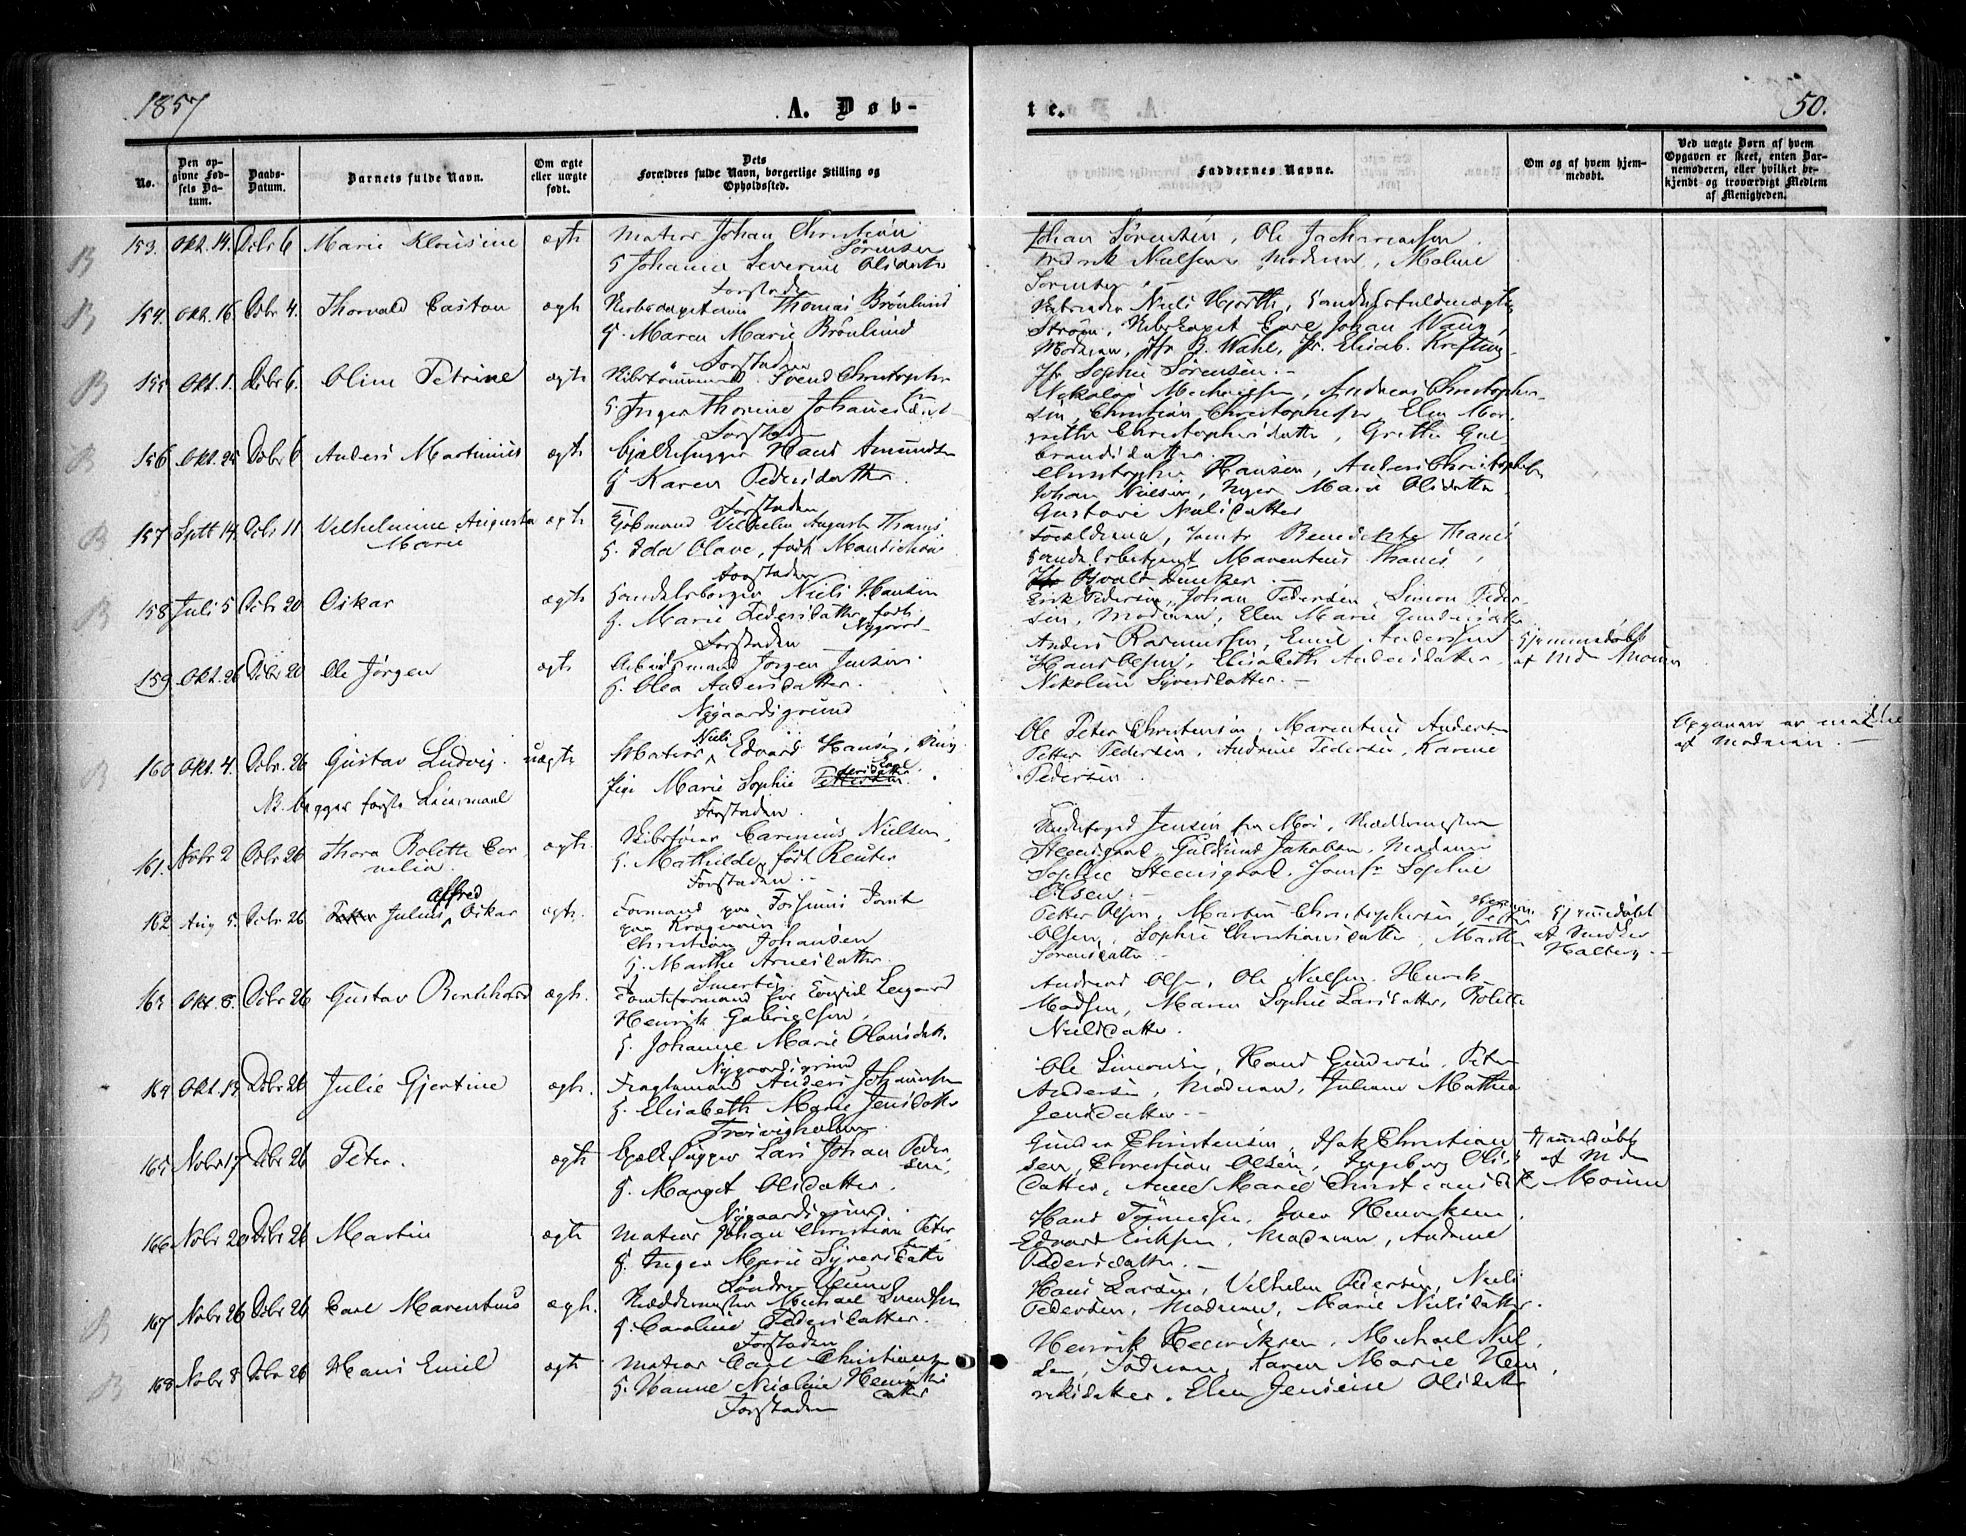 1857
A. Døb-
te.
50.
No.
Den op-
givne Fød-
sels Da-
tum.
Daabs-
Datum.
Barnets fulde Navn.
Om ægte
eller uægte
født.
Dets
Forældres fulde Navn, borgerlige Stilling og
Opholdssted.
Faddernes Navne.
Om og af hvem hjem-
medøbt.
Ved uægte Børn af hvem
Opgaven er skeet, enten Bar-
nemoderen, eller hvilket be-
kjendt og troværdigt Medlem
af Menigheden.
B 153. Okt. 14. Dcbr 6 Marie Klausine ægte Matros Johan Christian
Sørensen
G Johanne Severine Olsdatter
Forstaden
Johan Sørensen, Ole Zachariassen
Fredrik Nielsen, Moderen, Maline
Sørensen
B 154. Okt. 16. Dcbr 4. Thorvald Caston ægte Skibscapitain Thomas Brönlund
G. Maren Marie Brönlund
Forstaden
Niels Hjorth, Handelsfuldmægtig
Strøm, Skibskapt Johan Wang,
Moderen, Jfr B. Wahl, Jfr. Elisab. Krefting
Jfr Sophie Sørensen.
B 155 Okt. 1. Dcbr 6. Oline Petrine ægte Skibstømmermd. Svend Christophersen
G. Inger Thorine Johannesdatter
Forstaden
Nikolai Michaelsen, Andreas Christopher-
sen, Christian Christophersen, Elen Mar-
grethe Christophersdatter, Grethe Gul-
brandsdatter.
B 156 Okt. 25 Dcbr 6 Anders Martinius ægte Bjælkehugger Hans Amundsen
G Karen Pedersdatter.
Forstaden
Christopher Hansen, Anders Christophersen
Johan Nielsen, Inger Marie Olsdatter
Gustave Nielsdatter
B 157 Sept 14. Dcbr 11 Vilhelmine Augusta
Marie
ægte Kjøbmand Vilhelm August Thams
G. Ida Olave, født
Forstaden
Forældrene, Jomfr Benedikte Thams
Handelsbetjent Marentius Thams,
Osvald Duncker.
B 158 Juli 5 Dcbr 20 Oskar ægte Handelsborger Niels Hansen
G. Marie Pedersdatter født
Nygaard
Forstaden
Erik Pedersen, Johan Pedersen, Simon Peder-
sen, Moderen, Elen Marie Gundersdatter
159 Okt. 26 Dcbr 20 Ole Jørgen ægte Arbeidsmand Jørgen Jensen
G. Olea Andersdatter.
Nygaardsgrund
Anders Rasmussen, Emil Andersen
Hans Olsen, Elisabeth Andersdatter
Nikoline Syversdatter.
Hjemmedøbt
af Md Moum
B 160 Okt. 4. Dcbr. 26 Gustav Ludvig. uægte Matros Niels Edvard Hansen, Ung
Pige Marie Sophie Pedersdatter
Forstaden.
Nb. begges første Leiermaal
Ole Peter Christensen, Marentius Andersen
Petter Pedersen, Andrine Pedersen, Karine
Pedersen
Opgaven er meddelt
af Moderen.
161. Nobr 2 Dcbr 26 Thora Bolette Cor
nelia
ægte. Skibsfører Carinius Nielsen,
G. Mathilde, født Reuter
Forstaden.
Underfoged Jensen fra Mos, Ræddermester
Steensgaard, Guldsmd Jakobsen, Madame
Sophie Steensgaard. Jomfr Sophie
Olsen.
162 Aug 5. Dcbr 26 Julius Alfred Oskar ægte. Formand paa
paa Kragerøen
Christian Johansen
G. Marthe Arnesdatter.
Petter Olsen, Martin Christophersen, Petter
Olsen, Sophie Christiansdatter, Marthe
Sørensdatter
Hjemmedøbt
163 Okt. 8. Dcbr 26 Gustav Bernhard ægte. Tomteformand
Henrik Gabrielsen,
G. Johanne Marie Olausdatter.
Nygaardsgrund
Andreas Olsen, Ole Nielsen, Henrik
Madsen, Maren Sophie Larsdatter, Bolette
Nielsdatter.
164 Okt. 13. Dcbr 26 Julie Gjertine ægte. Fragtemand Anders Johannesen
G. Elisabeth Marie Jensdatter
Ole Simonsen, Hans Gundersen, Peter
Andersen, Moderen, Juliane Mathea
Jensdatter.
165 Nobr 17 Dcbr 26 Peter. ægte Bjælkehugger Lars Johan Peder
sen,
G. Margit Olsdatter.
Nygaardsgrund
Gunder Christensen, Isak Christian
sen, Christian Olsen, Ingeborg Ols-
datter, Anne Marie Christiansdtr
Hjemmedøbt
af Md
Moum
166 Nobr 20 Dcbr 26 Martin ægte Matros Johan Christian Peter
sen
G. Inger Marie Syversdatter
Hans Tønnesen, Iver Henriksen
Edvard Eriksen, Moderen, Andrine
Pedersdatter.
B 167 Nobr 26 Dcbr 26 Carl Marentius ægte. Ræddermester Michael Svendsen
G. Caroline Pedersdatter.
Forstaden
Hans Larsen, Vilhelm Pedersen, Niels
Pedersen, Moderen, Marie Nielsdatter.
B 168 Nobr 8 Dcbr 26 Hans Emil ægte Matros Carl Christiansen
G. Hanne Nicoline Henriks
datter
Forstaden
Henrik Henriksen, Michael Niel
sen, Moderen, Karen Marie Hen
riksdatter. Elen Jensine Olsdatter